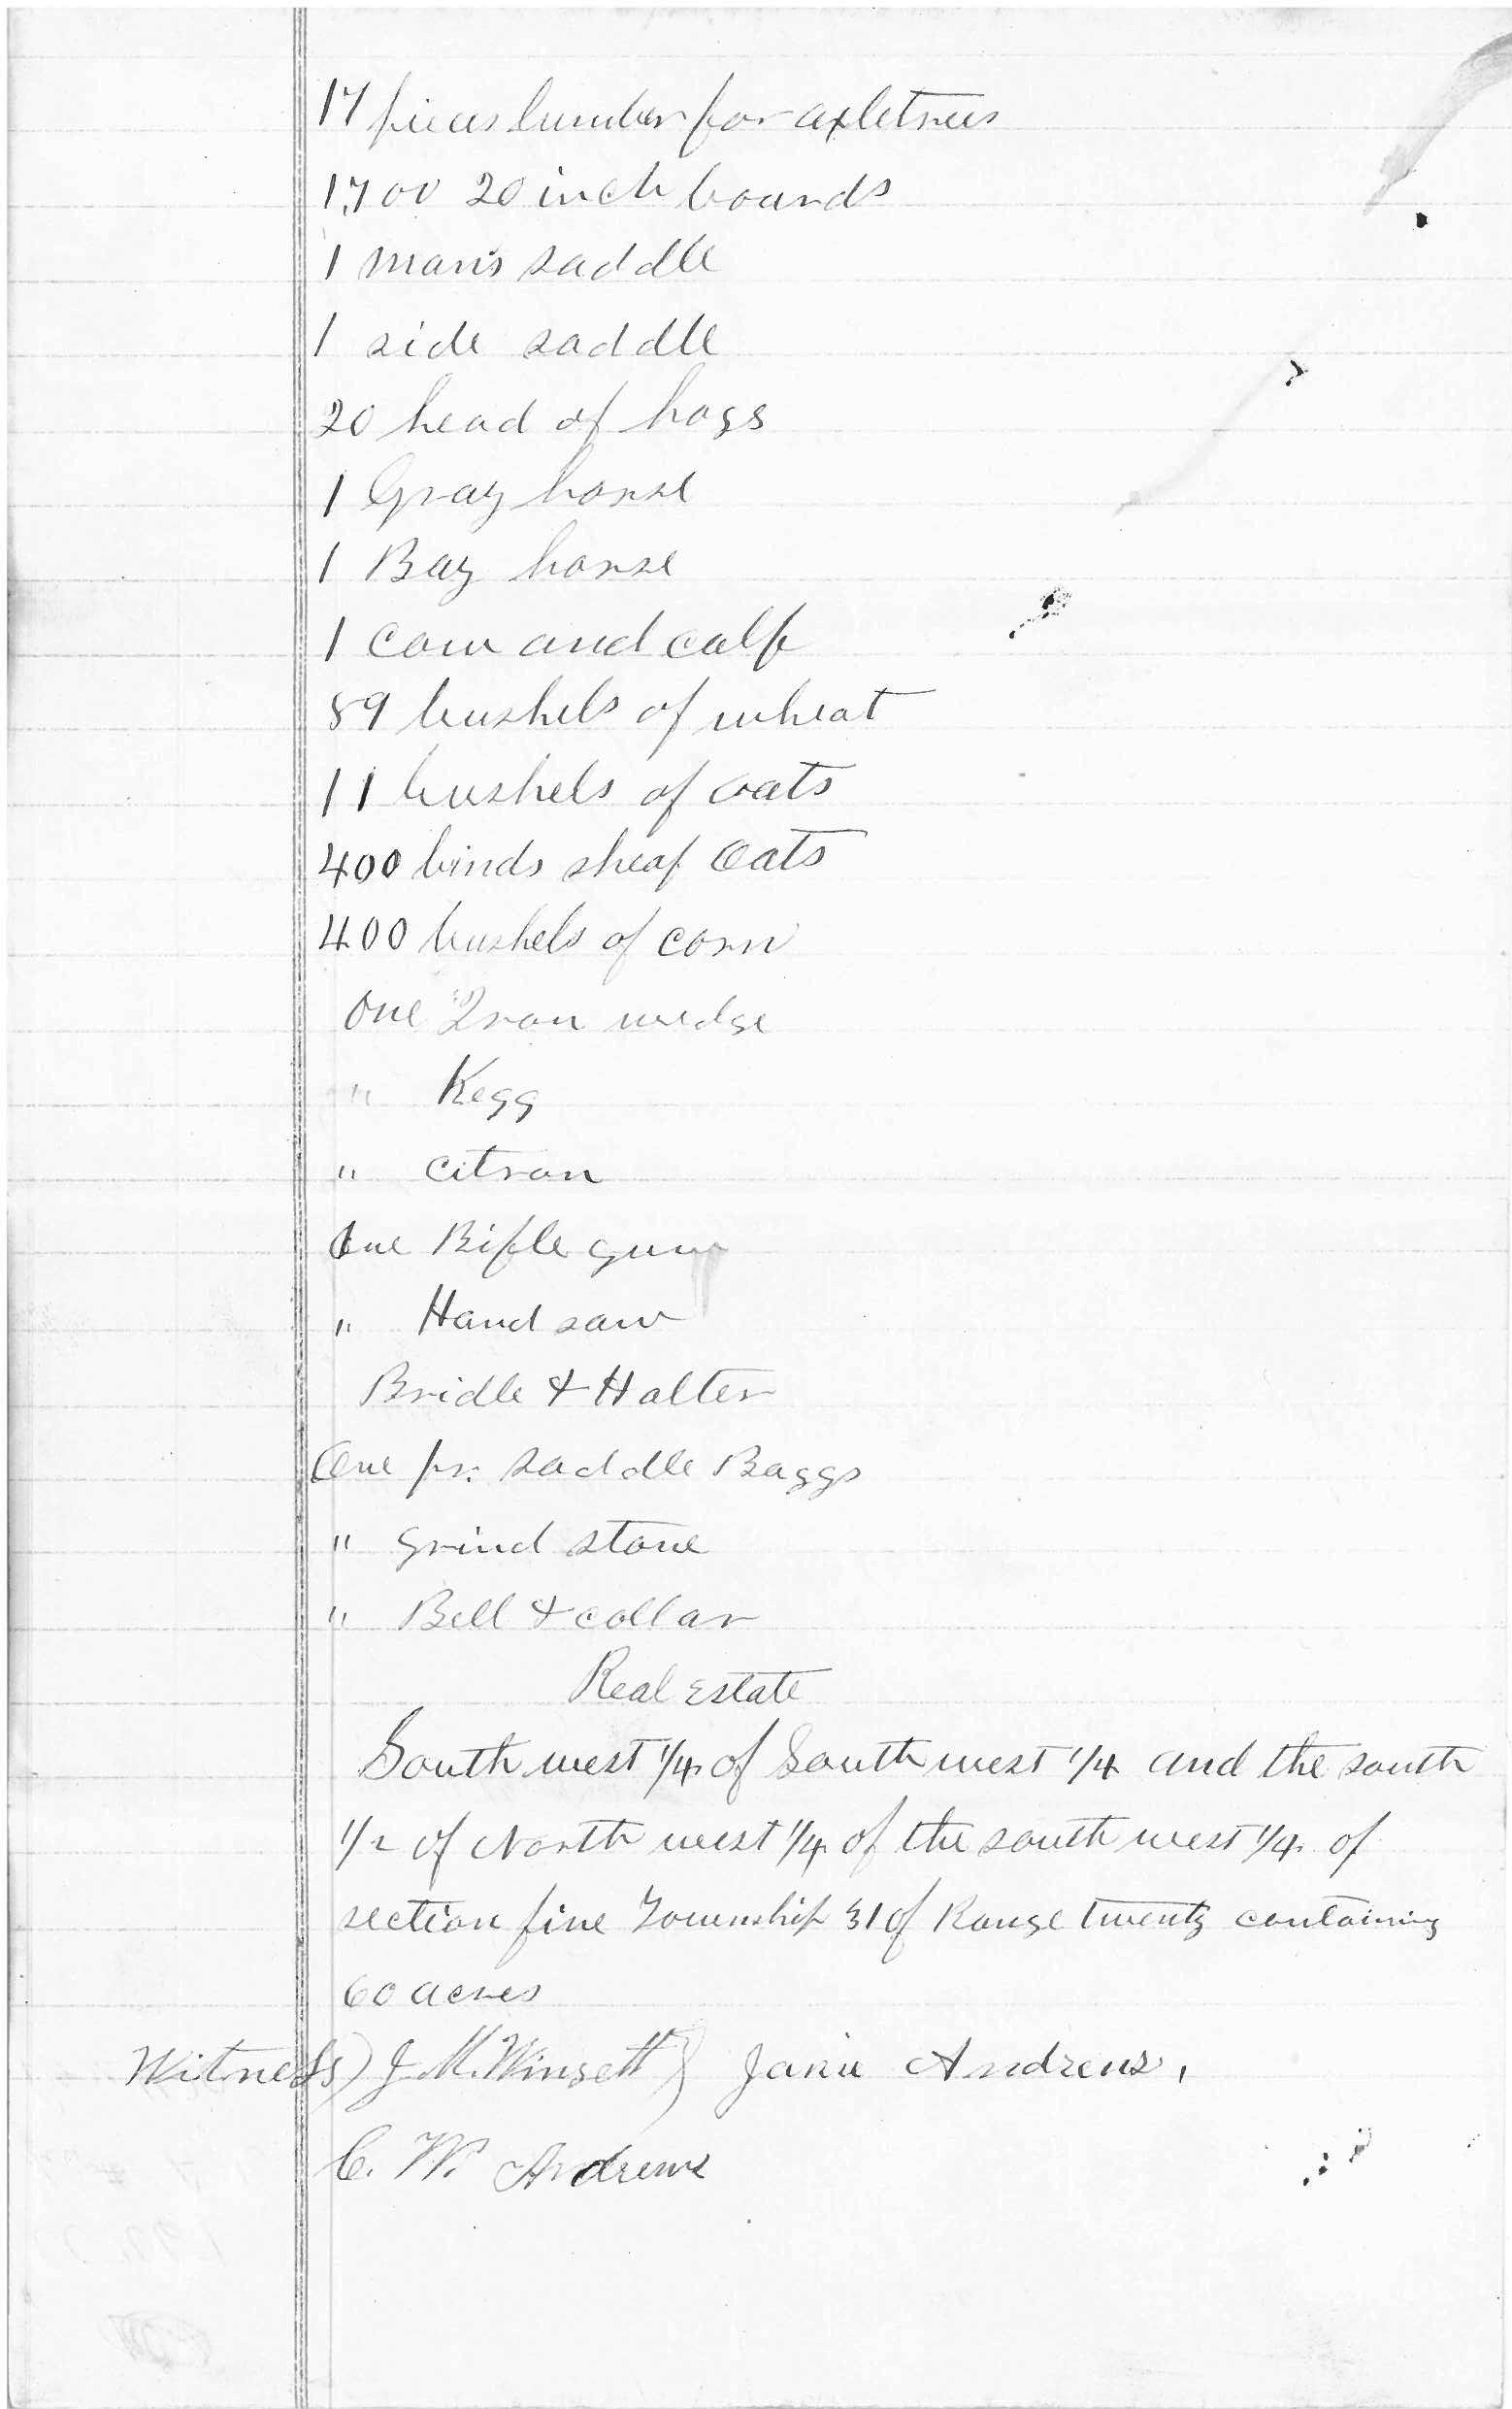 17 pieces lumber for axletrees
1,700 20 inch boards
1 man's saddle
1 side saddle
20 head of hogs
1 Gray horse
1 Bay horse
1 cow and calf
89 bushels of wheat
11 bushels of oats
400 binds sheaf Oats
400 bushels of corn
One Iron wedge
" Kegg
" citron
One Rifle gun
" Hand saw
Bridle & Halter
One pr. saddle Baggs
" grind stone
" Bell & collar
Real Estate
South west 1/4 of South west 1/4 and the south
1/2 of North west 1/4 of the south west 1/4 of
section five Township 31 of Range twenty containing
60 acres
Witness) J. M. Winsett) Janie Andrews,
C. W. Andrews